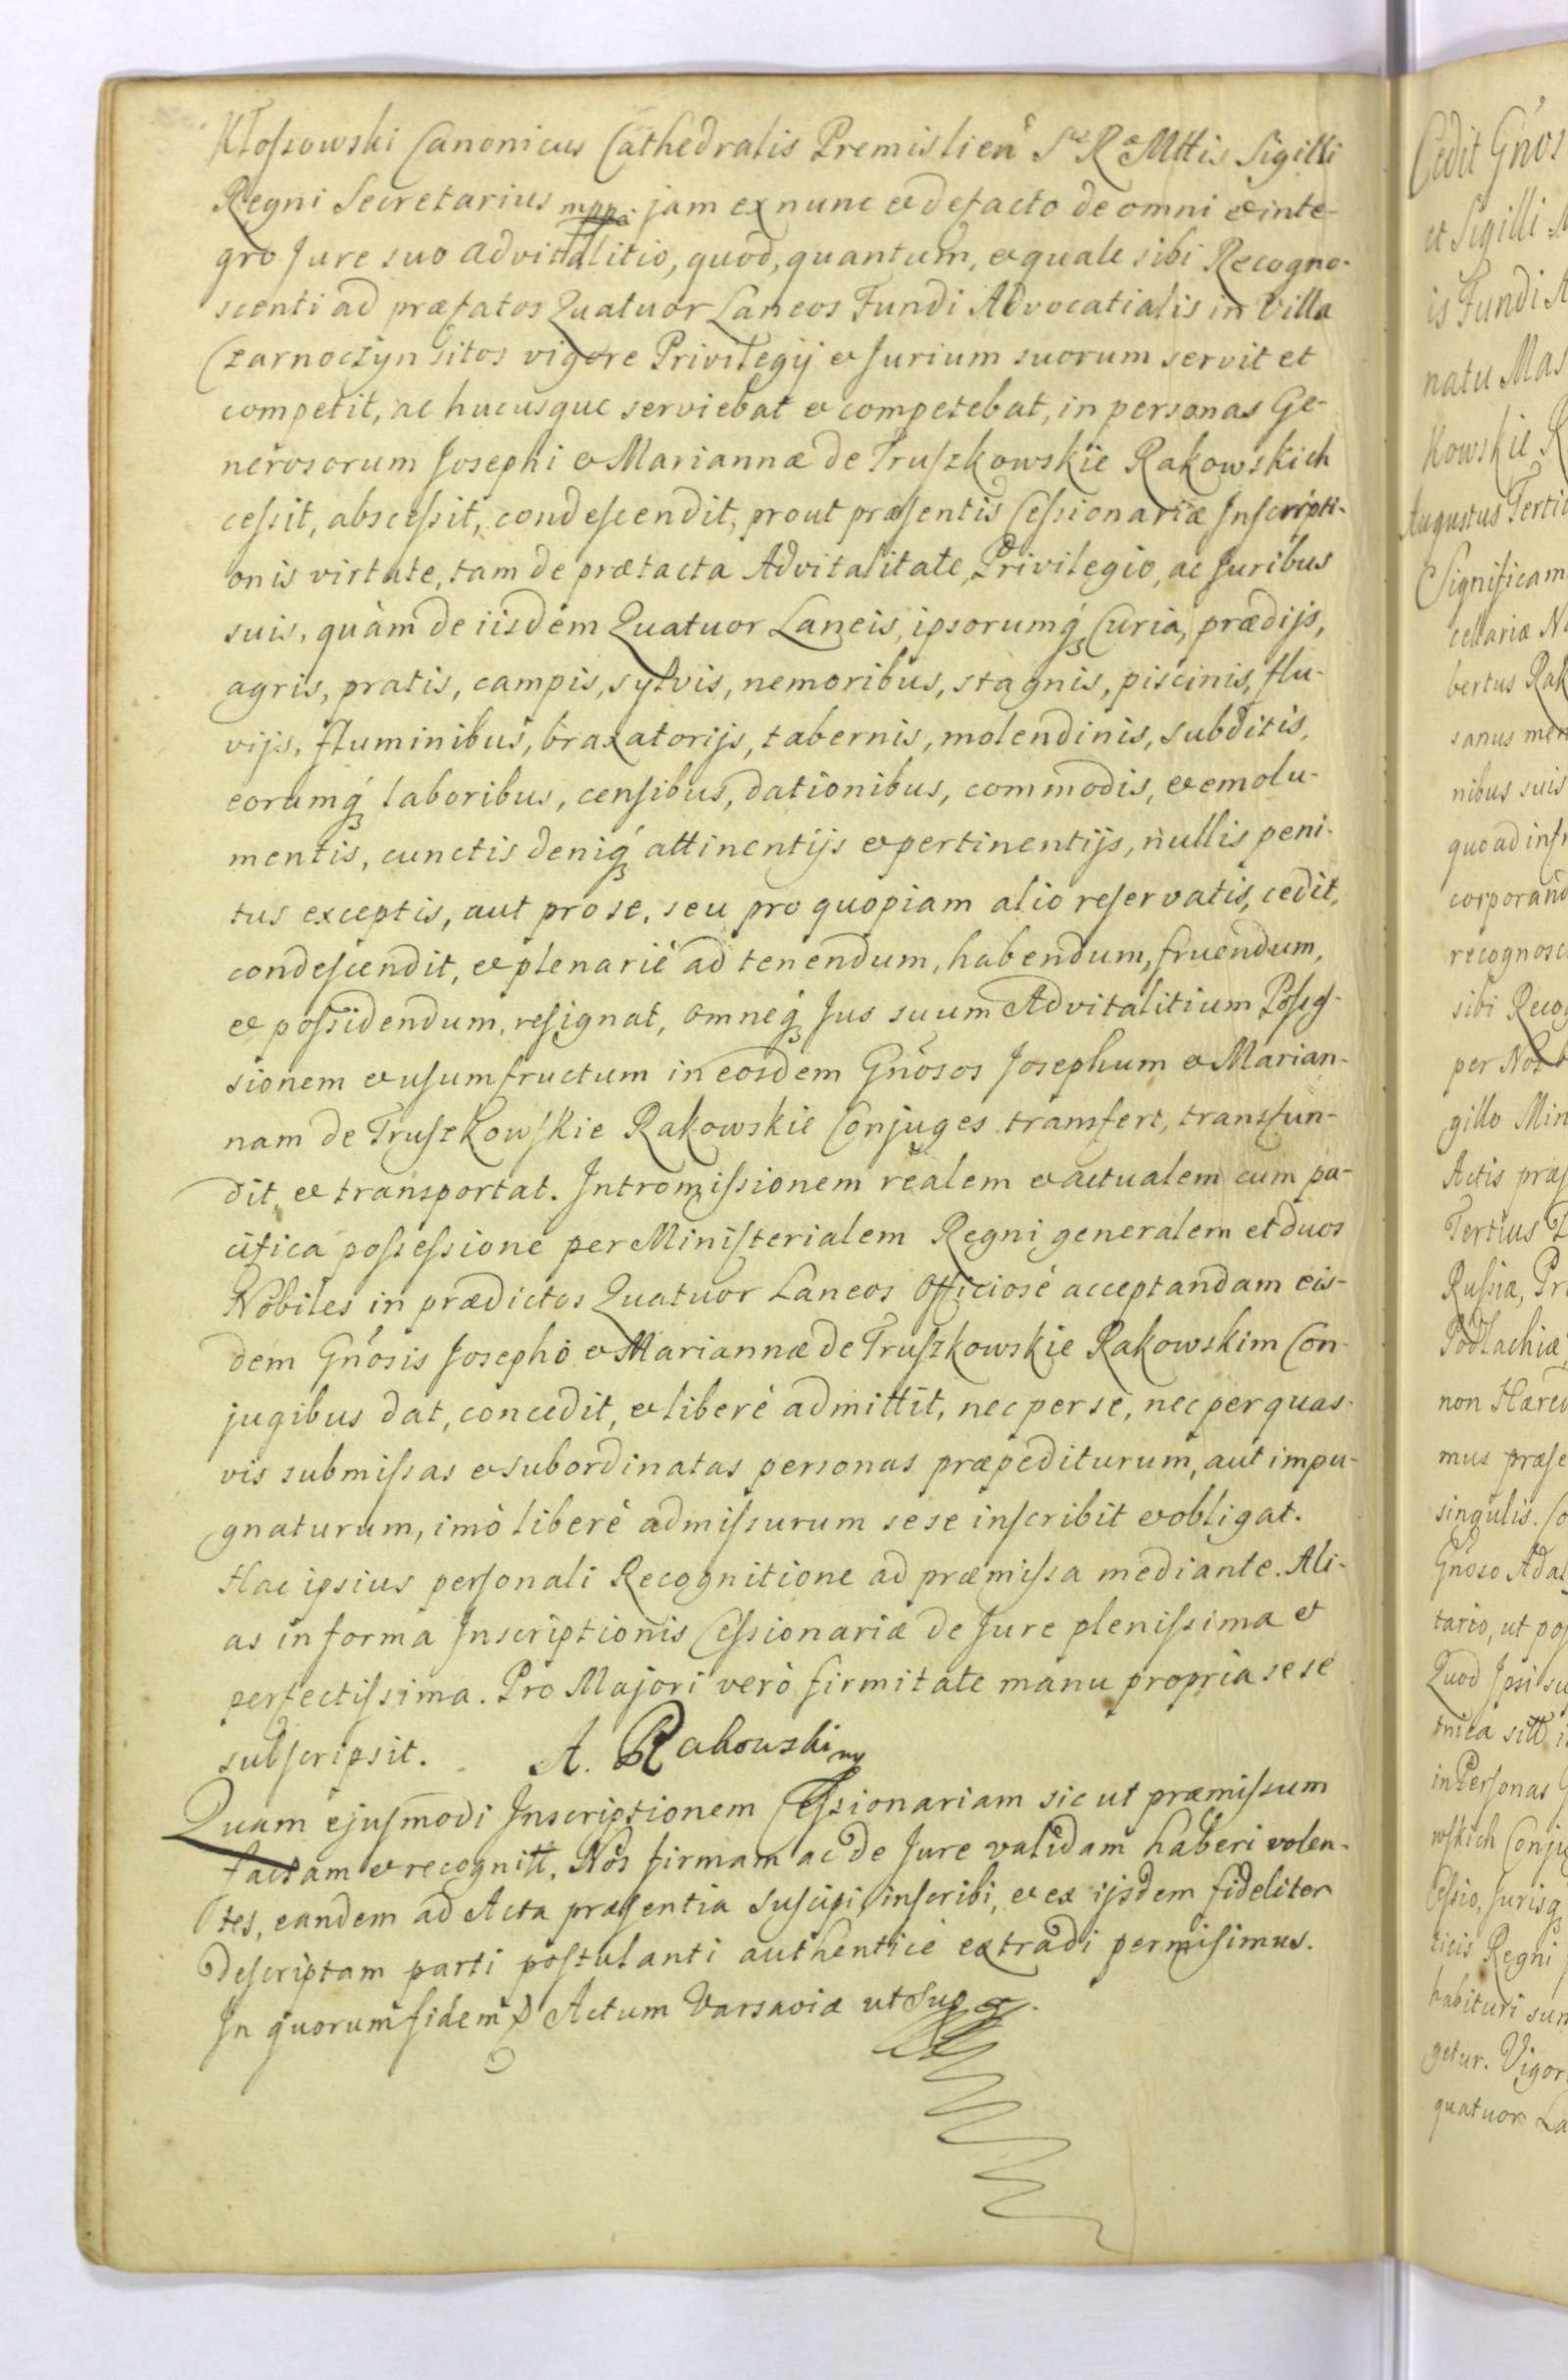 Kłoſsowski Canonicus Cathedralis Premislien̄ Sᵃᵉ Rᵃᵉ Mttis Sigilli
Regni Secretarius mppa. jam ex nunc et de facto de omni et inte-
gro Jure suo advitalitio, quod, quantum, et quale sibi Recogno-
scenti ad præfatos Quatuor Laneos Fundi Advocatialis in Villa
Czarnoczyn sitos vigore Privilegij et Jurium suorum servit et
competit, ac hucusque serviebat et competebat, in personas Ge-
nerosorum Josephi et Mariannæ de Truſzkowskie Rakowskich
ceſsit, absceſsit, condeſcendit, prout præſentis Ceſsionariæ Inſcripti-
onis virtute, tam de prætacta Advitalitate, Privilegio, ac Juribus
suis, quàm de iisdem Quatuor Laneis, ipsorumq́ꝫ Curia, prædijs,
agris, pratis, campis, sylvis, nemoribus, stagnis, piscinis, flu-
vijs, fluminibus, braxatorijs, tabernis, molendinis, subditis,
eorumq́ꝫ laboribus, cenſibus, dationibus, commodis, et emolu-
mentis, cunctis deniq́ꝫ attinentijs et pertinentijs, nullis peni-
tus exceptis, aut pro se, seu pro quopiam alio reſervatis, cedit,
condeſcendit, et plenariè ad tenendum, habendum, fruendum,
et poſsidendum, reſignat, omneq́ꝫ Jus suum Advitalitium Poſseſ-
sionem et uſumfructum in eosdem Gn̄osos Josephum et Marian-
nam de Truſzkowſkie Rakowskie Conjuges transfert, transfun-
dit, et transportat. Intromiſsionem realem et actualem cum pa-
cifica poſseſsione per Miniſterialem Regni generalem et duos
Nobiles in prædictos Quatuor Laneos Officiosè acceptandam eis-
dem Gn̄osis Josepho et Mariannæ de Truſzkowskie Rakowskim Con-
jugibus dat, concedit, et liberè admittit, nec per se, nec per quas-
vis submiſsas et subordinatas personas præpediturum, aut impu-
gnaturum, imò liberè admiſsurum sese inſcribit et obligat.
Hac ipsius perſonali Recognitione ad præmiſsa mediante. Ali-
as in forma Inscriptionis Ceſsionariæ de Jure pleniſsima et
perfectiſsima. Pro Majori verò firmitate manu propria sese
subſcripsit. A. Rakowski mp
Quam ejuſmodi Inscriptionem Ceſsionariam sic ut præmiſsum
factam et recognitt. Nos firmam ac de Jure validam haberi volen-
tes, eandem ad Acta præſentia Suſcipi, inſcribi, et ex ijsdem fideliter
deſcriptam parti poſtulanti authenticè extradi permiſimus.
In quorum fidem Actum Varsaviæ ut Supra.
Cedit Gn̄os
et Sigilli
is Fundi
natu Mas
kowskie R
Augustus Terti
Significam
cellariæ
bertus Rak
sanus men
nibus suis
quo ad infr
corporand
recognosc
sibi Recog
per Nos
gillo Min
Actis præſ
Tertius
Ruſsiæ, Pr
Podlachiæ
non Hæred
mus præſe
singulis. Co
Gn̄oso Adal
tario, ut poſ
Quod Ipsi su
in Perſonas
wſkich Conju
Ceſsio, Jurisq́ꝫ
Regni
habituri sun
getur. Vigor
quatuor La